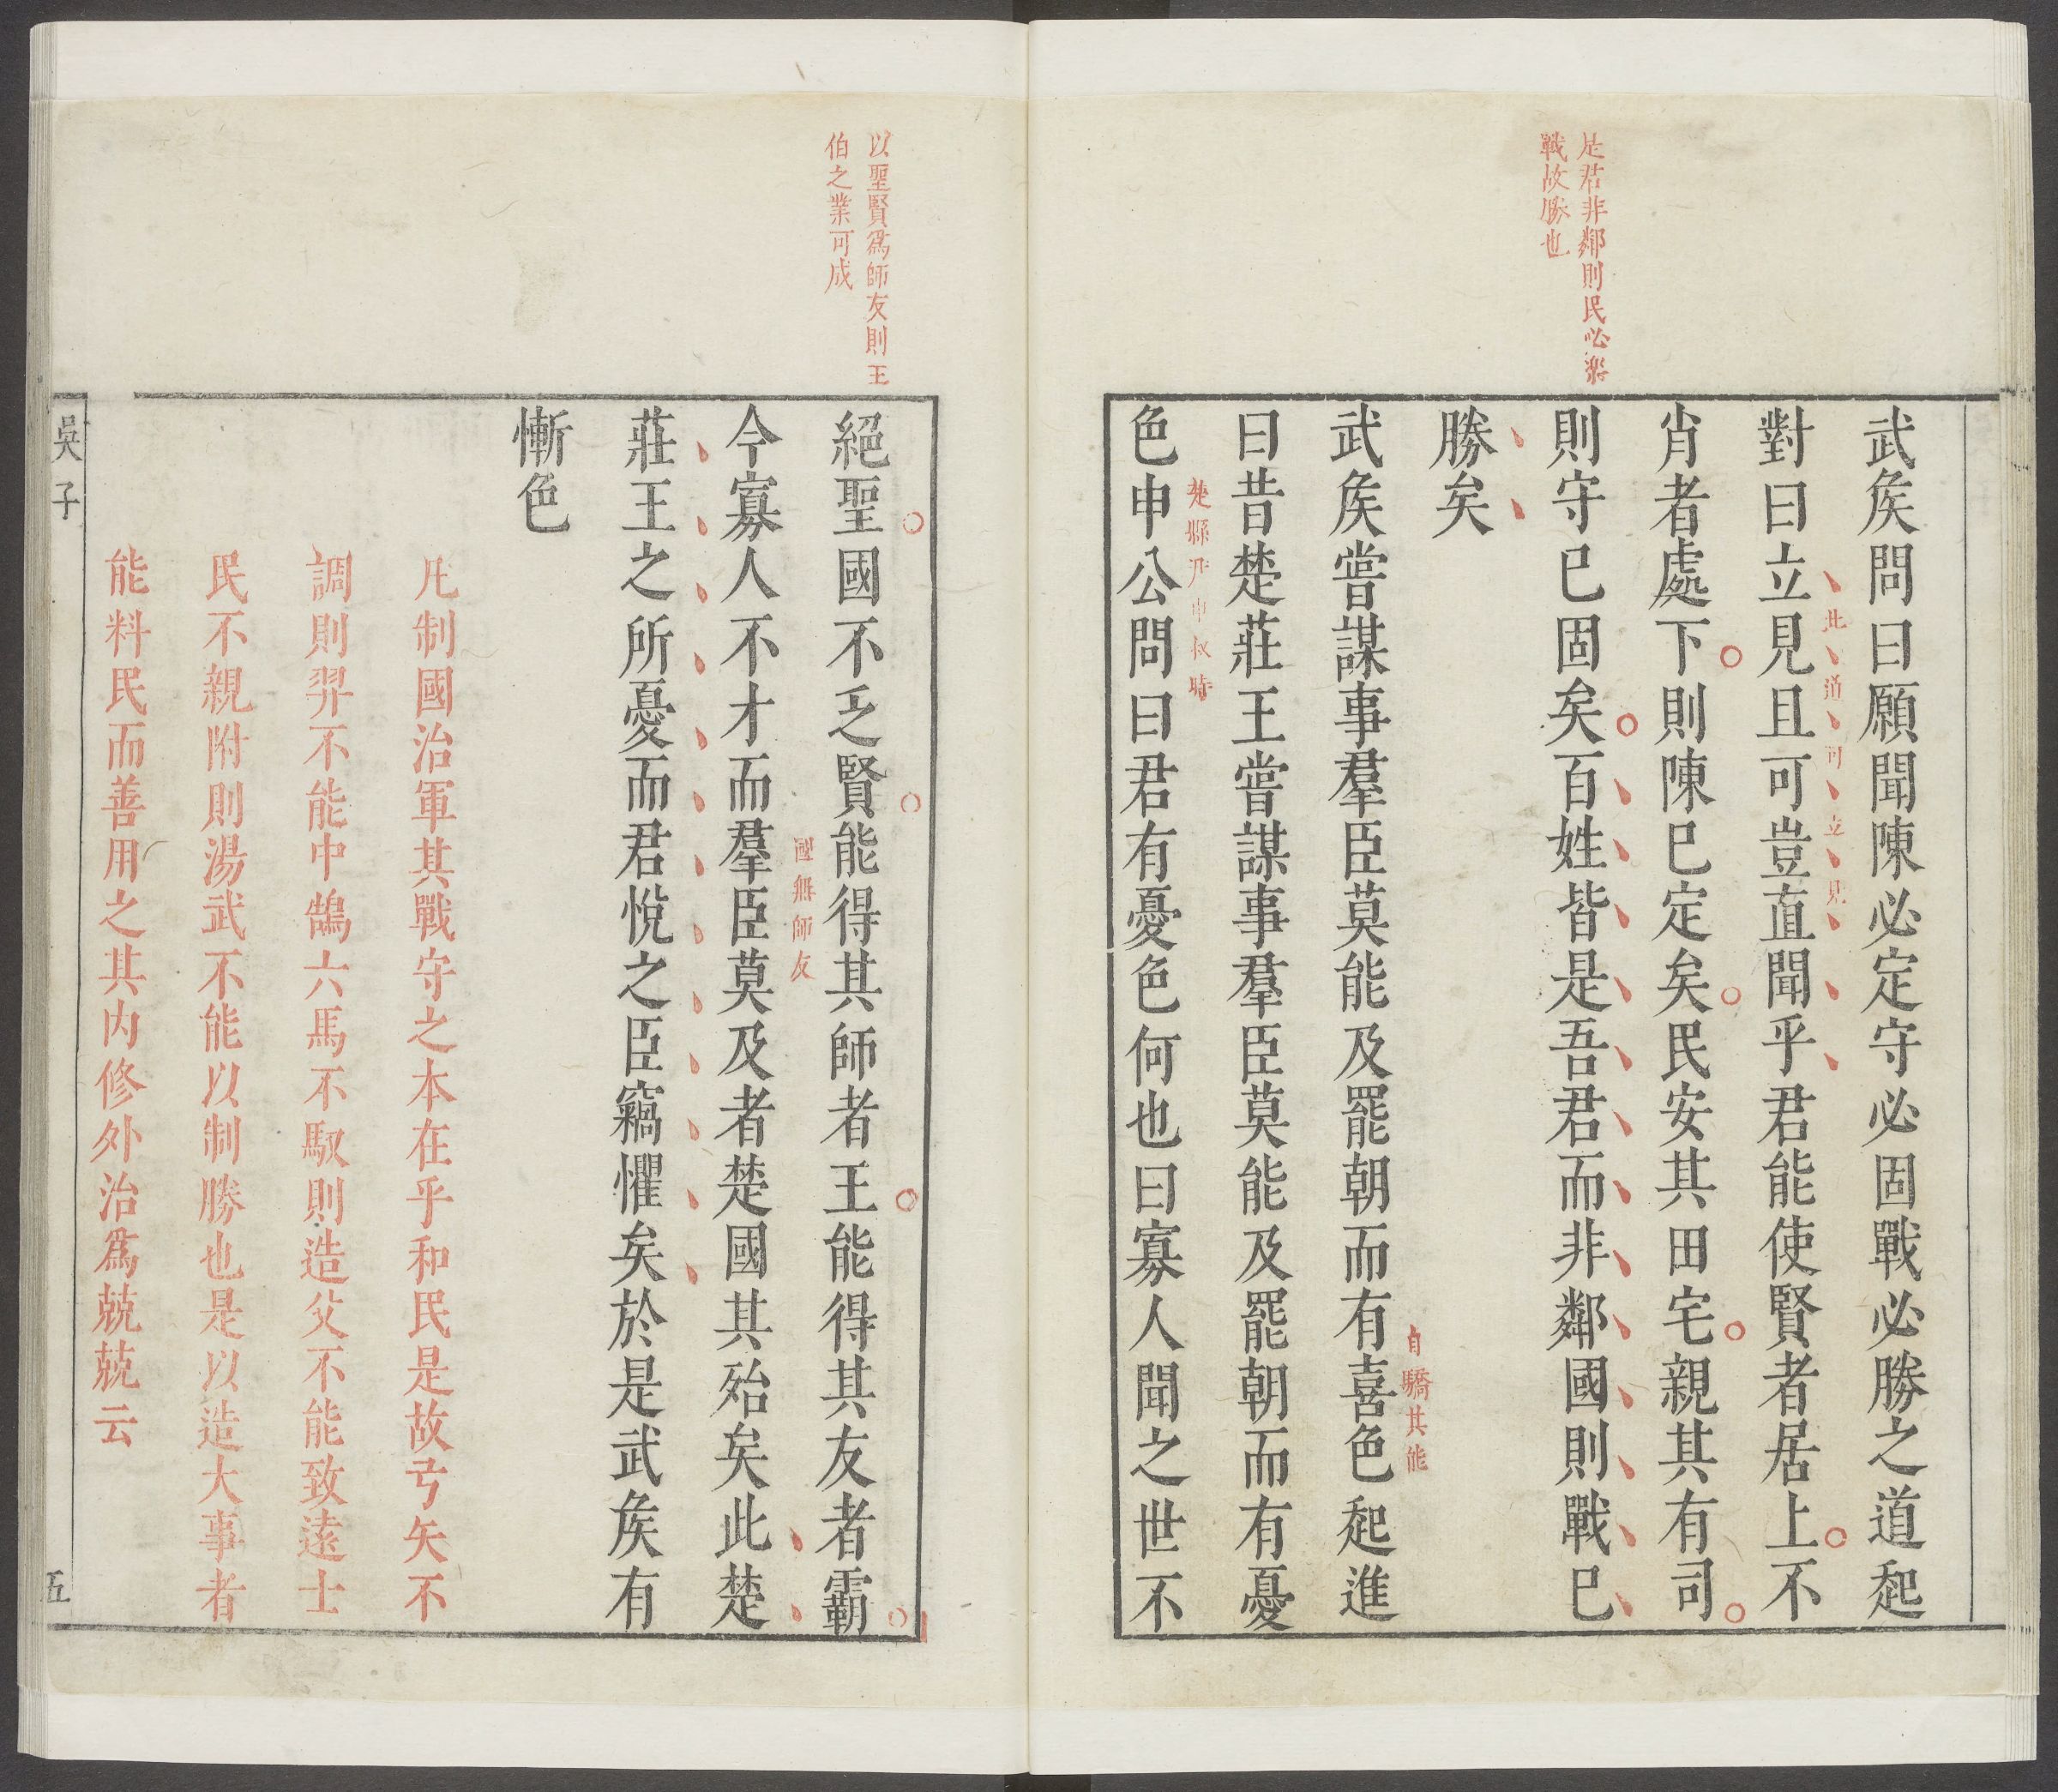 是君非鄰則民必樂
戰故勝也
武矦問曰願聞陳必定守必固戰必勝之道起
對曰立見且可豈直聞乎君能使賢者居上不
此道可立見
肖者處下則陳已定矣民安其田宅親其有司
則守已固矣百姓皆是吾君而非鄰國則戰已
勝矣
武矦嘗謀事羣臣莫能及罷朝而有喜色起進
自驕其能
曰昔楚莊王嘗謀事羣臣莫能及罷朝而有憂
色申公問曰君有憂色何也曰寡人聞之世不
楚縣尹申叔時
以聖賢爲師友則王
伯之業可成
絕聖國不乏賢能得其師者王能得其友者霸
今寡人不才而羣臣莫及者楚國其殆矣此楚
國無師友
莊王之所憂而君悅之臣竊懼矣於是武矦有
慚色
凡制國治軍其戰守之本在乎和民是故弓矢不
調則羿不能中鵠六馬不馭則造父不能致遠士
民不親附則湯武不能以制勝也是以造大事者
能料民而善用之其內修外治爲兢兢云
吳子
五